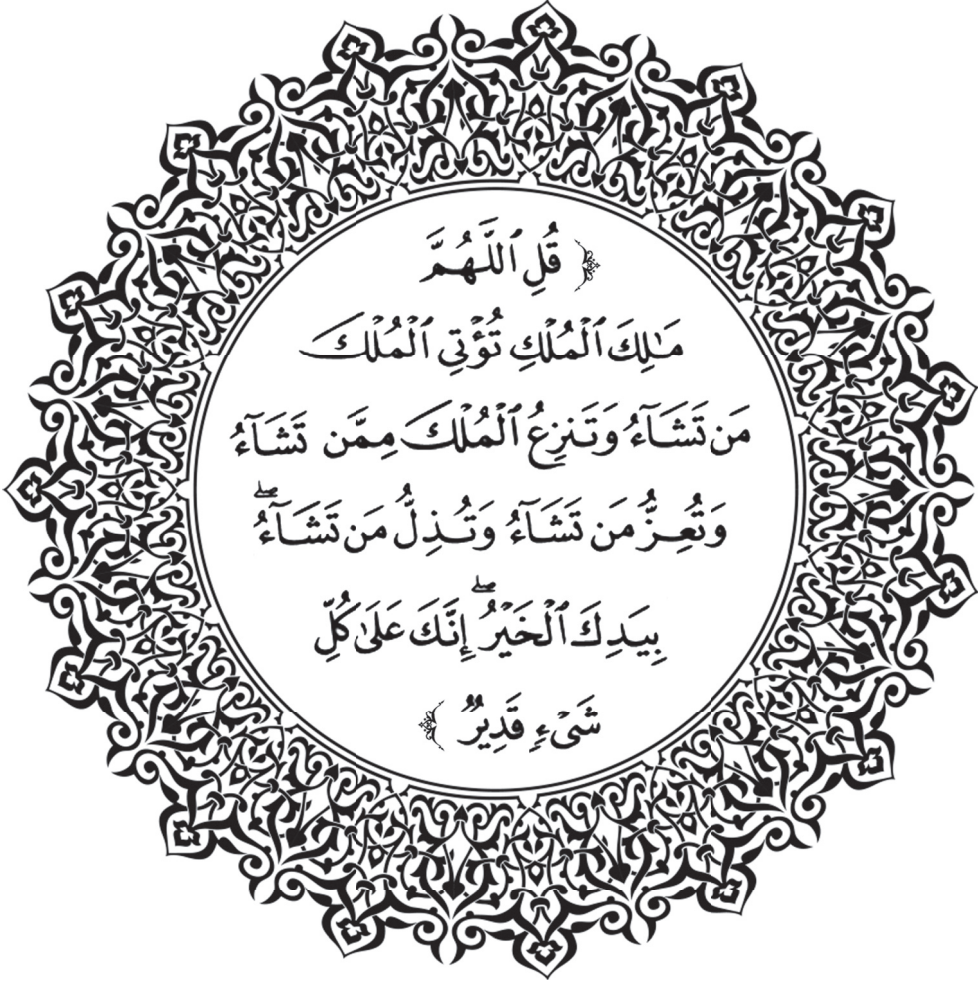 ﴿ قُلِ ٱللَّهُمَّ
مَـٰلِكَ ٱلْمُلْكِ تُؤْتِى ٱلْمُلْكَ
مَن تَشَآءُ وَتَنزِعُ ٱلْمُلْكَ مِمَّن تَشَآءُ
وَتُعِزُّ مَن تَشَآءُ وَتُذِلُّ مَن تَشَآءُ ۖ
بِيَدِكَ ٱلْخَيْرُ ۖ إِنَّكَ عَلَىٰ كُلِّ
شَىْءٍ قَدِيرٌ ﴾